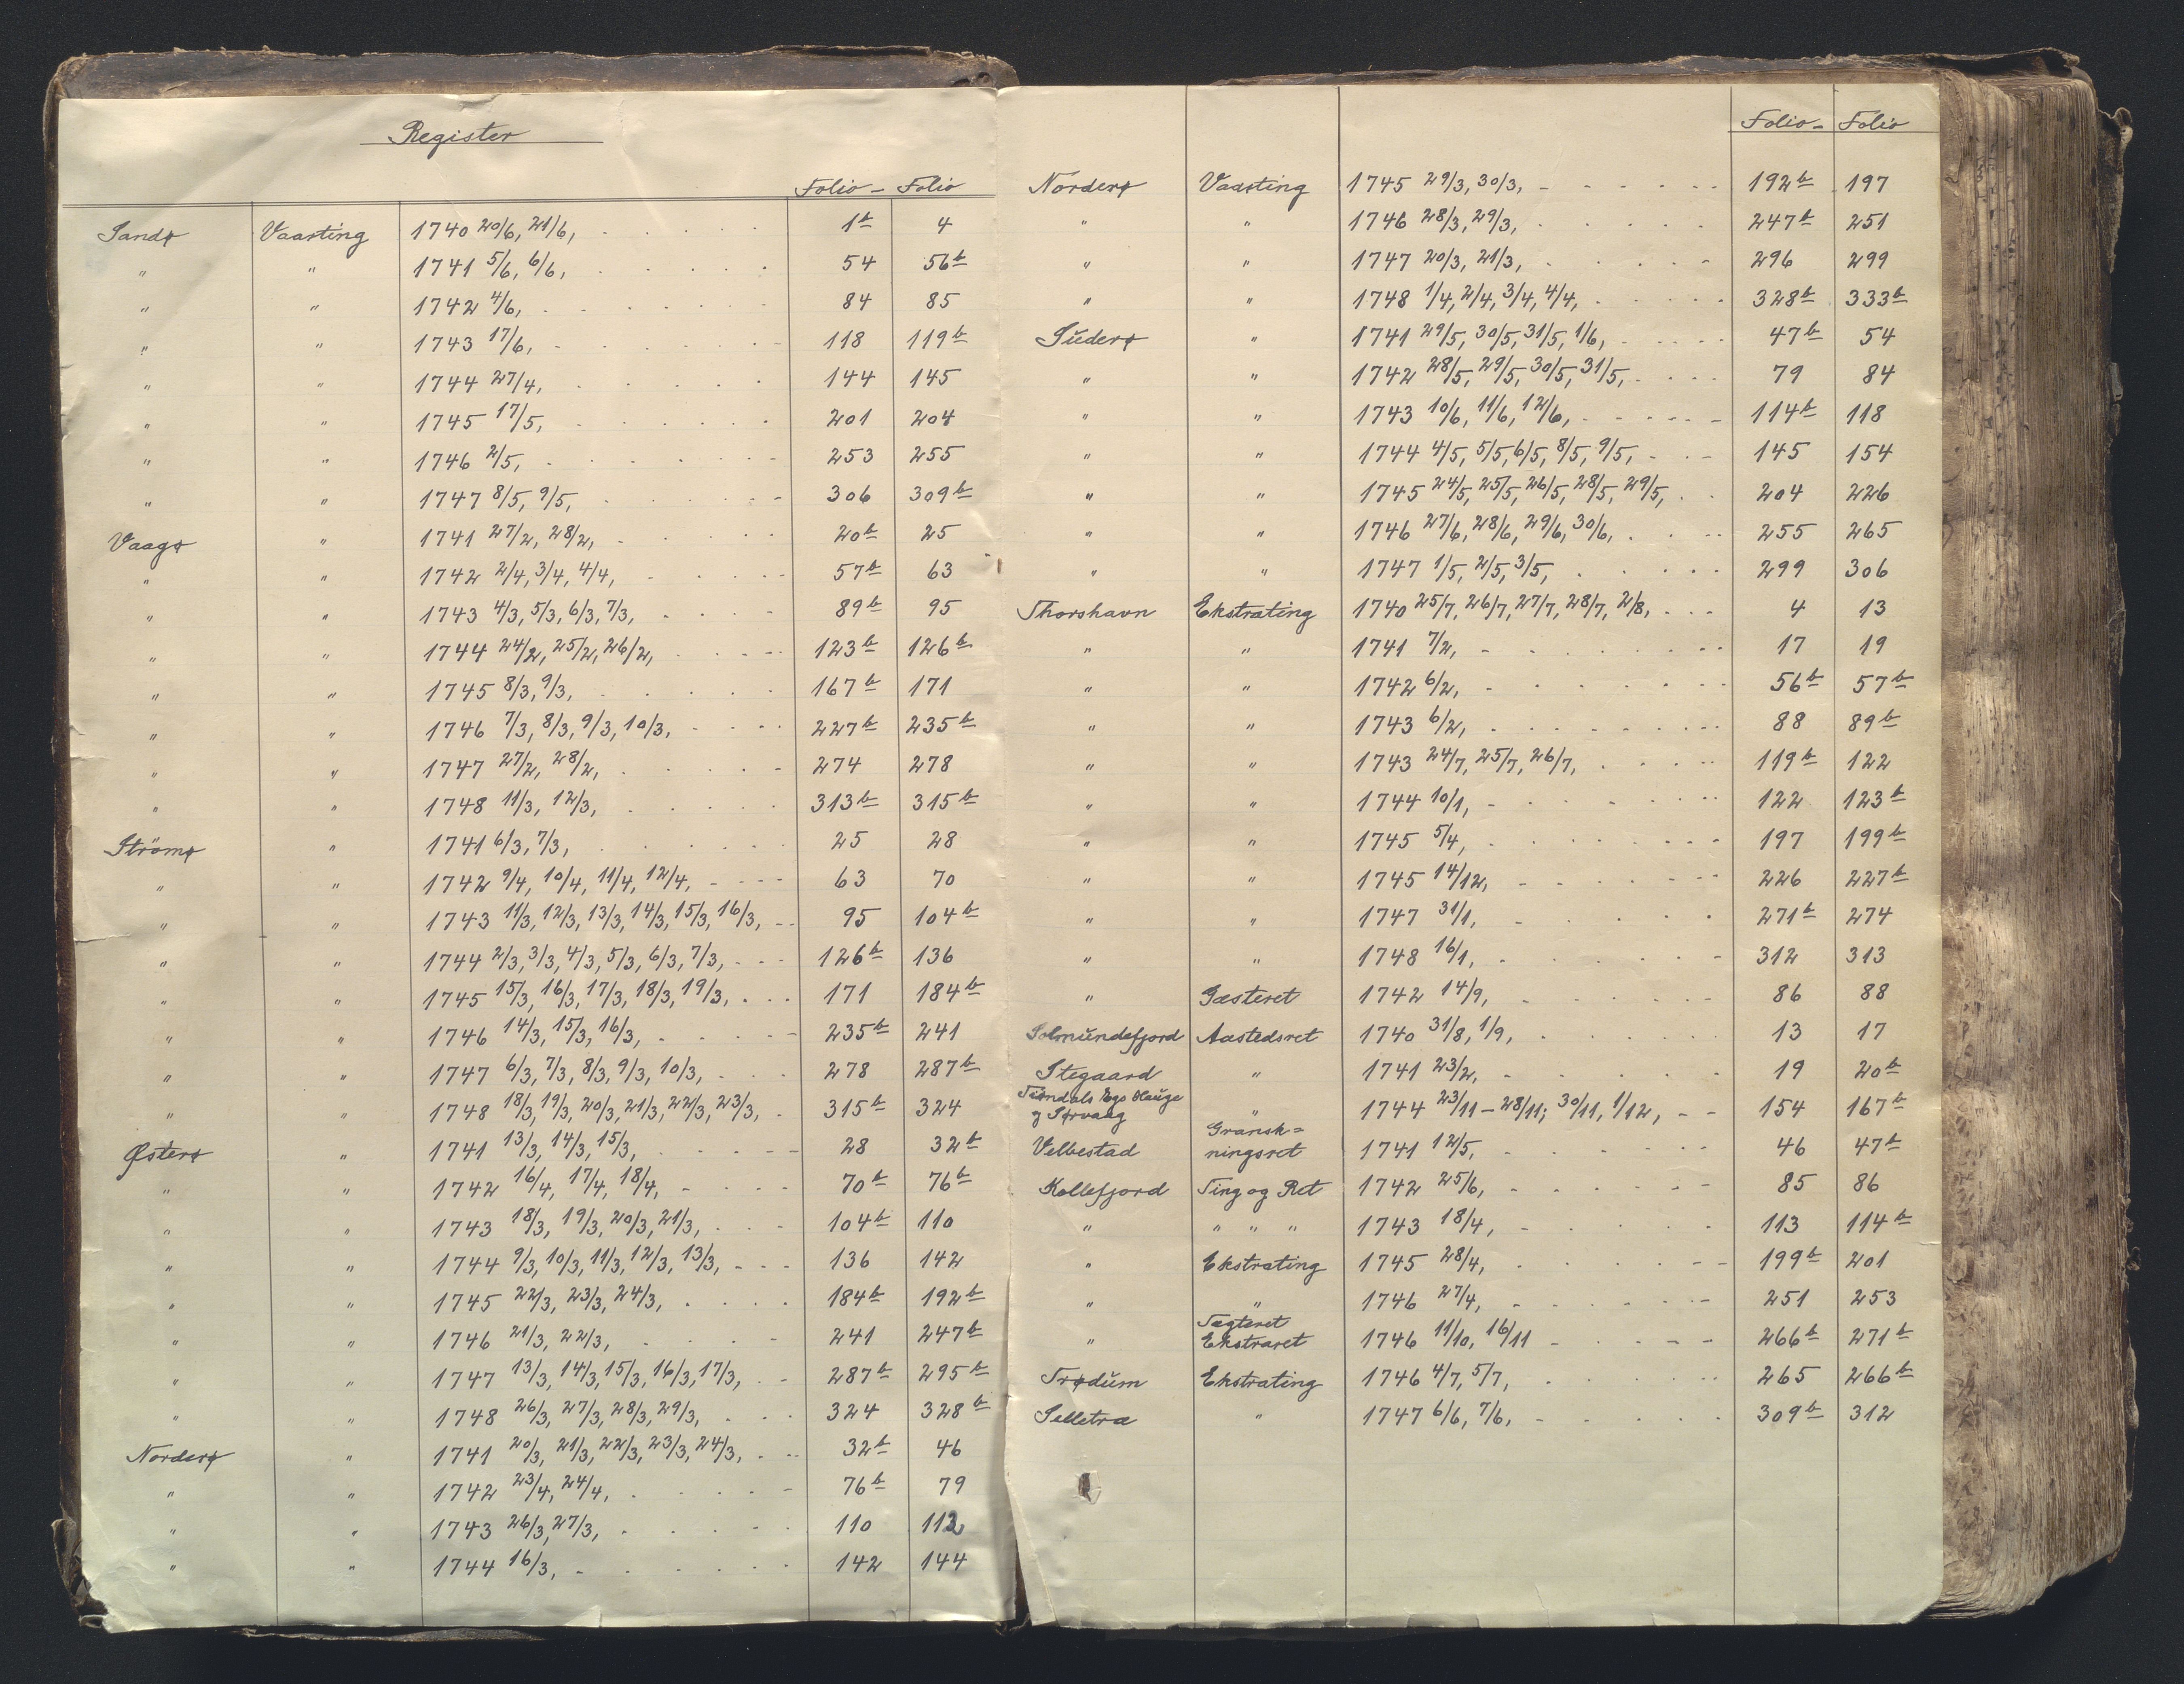 Register
Folio - Folio
Sandø Vaarting 1740 20/6, 21/6, 1b 4
" " 1741 5/6, 6/6, 54 56b
" " 1742 4/6, 84 85
" " 1743 17/6, 118 119b
" " 1744 27/4, 144 145
" " 1745 17/5, 201 204
" " 1746 2/5, 253 255
" " 1747 8/5, 9/5, 306 309b
Vaagø " 1741 27/2, 28/2, 20b 25
" " 1742 2/4, 3/4, 4/4, 57b 63
" " 1743 4/3, 5/3, 6/3, 7/3, 89b 95
" " 1744 24/2, 25/2, 26/2, 123b 126b
" " 1745 8/3, 9/3, 167b 171
" " 1746 7/3, 8/3, 9/3, 10/3, 227b 235b
" " 1747 27/2, 28/2, 274 278
" " 1748 11/3, 12/3, 313b 315b
Strömø " 1741 6/3, 7/3, 25 28
" " 1742 9/4, 10/4, 11/4, 12/4, 63 70
" " 1743 11/3, 12/3, 13/3, 14/3, 15/3, 16/3, 95 104b
" " 1744 2/3, 3/3, 4/3, 5/3, 6/3, 7/3, 126b 136
" " 1745 15/3, 16/3, 17/3, 18/3, 19/3, 171 184b
" " 1746 14/3, 15/3, 16/3, 235b 241
" " 1747 6/3, 7/3, 8/3, 9/3, 10/3, 278 287b
" " 1748 18/3, 19/3, 20/3, 21/3, 22/3, 23/3, 315b 324
Østerø " 1741 13/3, 14/3, 15/3, 28 32b
" " 1742 16/4, 17/4, 18/4, 70b 76b
" " 1743 18/3, 19/3, 20/3, 21/3, 104b 110
" " 1744 9/3, 10/3, 11/3, 12/3, 13/3, 136 142
" " 1745 22/3, 23/3, 24/3, 184b 192b
" " 1746 21/3, 22/3, 241 247b
" " 1747 13/3, 14/3, 15/3, 16/3, 17/3, 287b 295b
" " 1748 26/3, 27/3, 28/3, 29/3, 324 328b
Norderø " 1741 20/3, 21/3, 22/3, 23/3, 24/3, 32b 46
" " 1742 23/4, 24/4, 76b 79
" " 1743 26/3, 27/3, 110 112
" " 1744 16/3, 142 144
Folio - Folio
Norderø Vaarting 1745 29/3, 30/3, 192b 197
" " 1746 28/3, 29/3, 247b 251
" " 1747 20/3, 21/3, 296 299
" " 1748 1/4, 2/4, 3/4, 4/4, 328b 333b
Sŭderø " 1741 29/5, 30/5, 31/5, 1/6, 47b 54
" " 1742 28/5, 29/5, 30/5, 31/5, 79 84
" " 1743 10/6, 11/6, 12/6, 114b 118
" " 1744 4/5, 5/5, 6/5, 8/5, 9/5, 145 154
" " 1745 24/5, 25/5, 26/5, 28/5, 29/5, 204 226
" " 1746 27/6, 28/6, 29/6, 30/6, 255 265
" " 1747 1/5, 2/5, 3/5, 299 306
Thorshavn Ekstrating 1740 25/7, 26/7, 27/7, 28/7, 2/8, 4 13
" " 1741 7/2, 17 19
" " 1742 6/2, 56b 57b
" " 1743 6/2, 88 89b
" " 1743 24/7, 25/7, 26/7, 119b 122
" " 1744 10/1, 122 123b
" " 1745 5/4, 197 199b
" " 1745 14/12, 226 227b
" " 1747 31/1, 271b 274
" " 1748 16/1, 312 313
" Gæsteret 1742 14/9, 86 88
Solmŭndefjord Aastedsret 1740 31/8, 1/9, 13 17
Stegaard " 1741 23/2, 19 20b
Haŭge
og Sørvaag " 1744 23/11 - 28/11; 30/11, 1/12, 154 167b
Velbestad Gransk=
ningsret 1741 12/5, 46 47b
Kollefjord Ting og Ret 1742 25/6, 85 86
" " " " 1743 18/4, 113 114b
" Ekstrating 1745 28/4, 199b 201
" " 1746 27/4, 251 253
" Tægteret
Ekstraret 1746 11/10, 16/11 266b 271b
Trødŭm Ekstrating 1746 4/7, 5/7, 265 266b
Selletra " 1747 6/6, 7/6, 309b 312